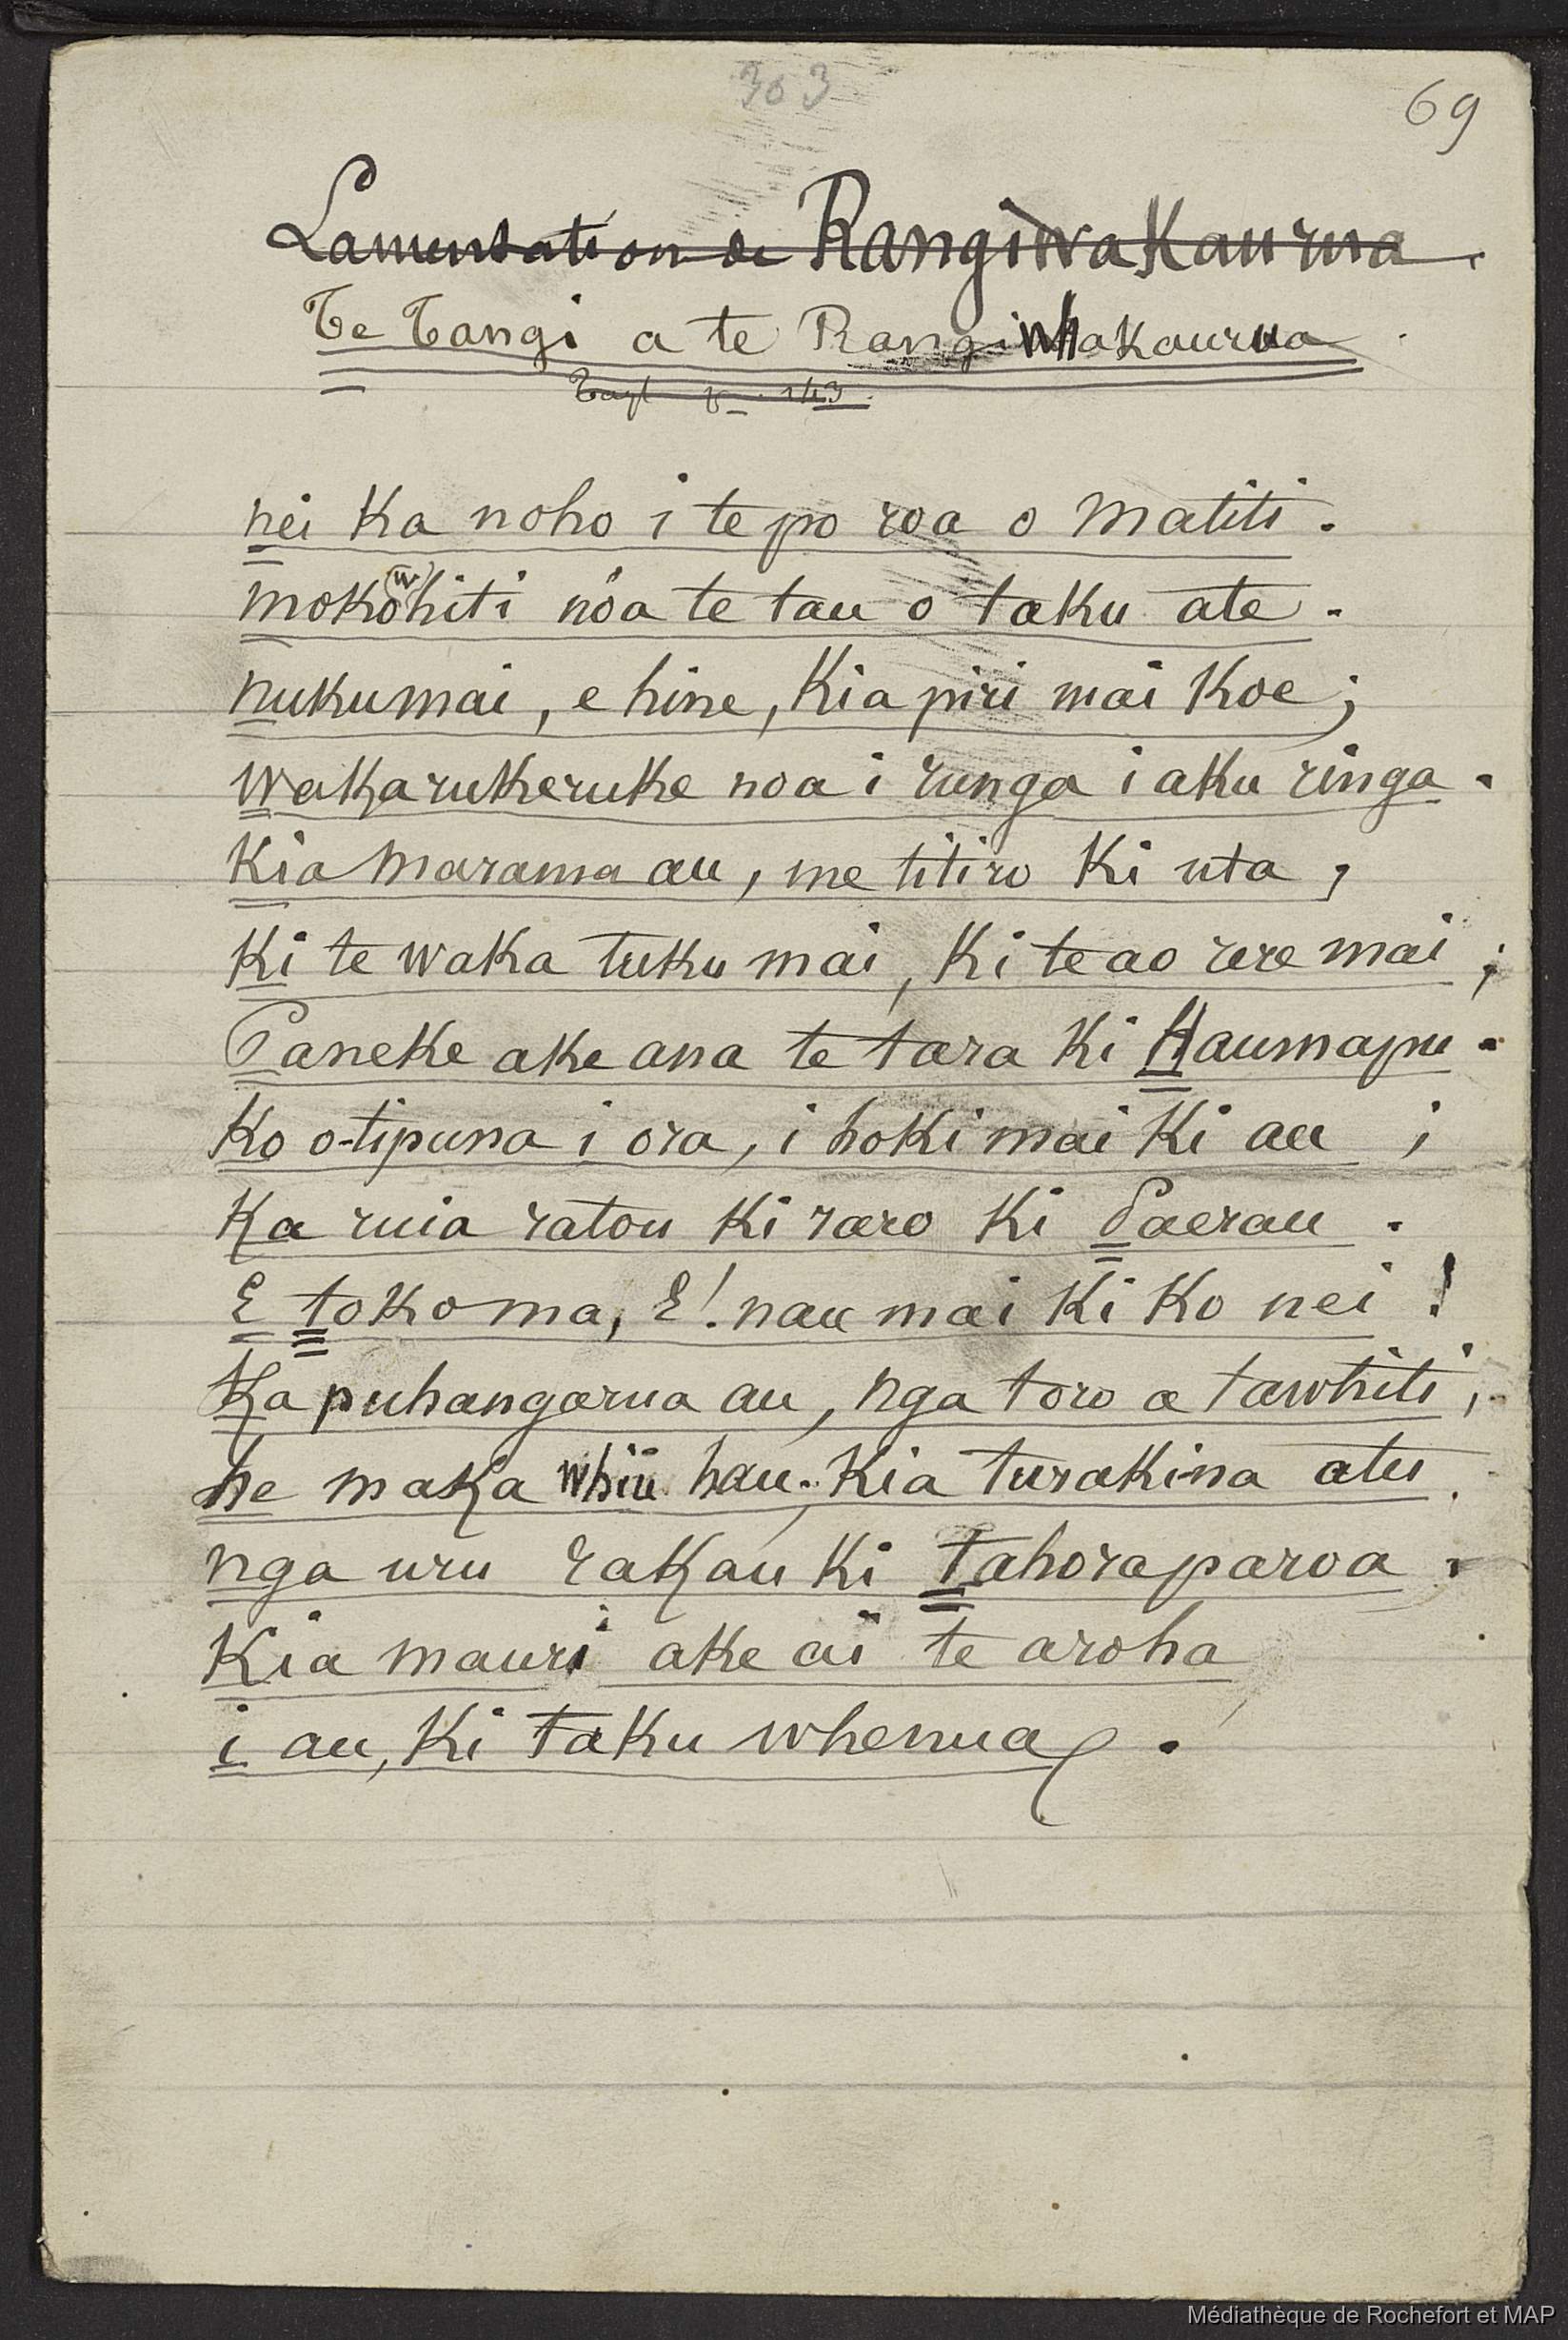 303
69
Lamentation de RangiwaKaurua.
Te Tangi a te RangiwhaKaurua.
Tayl p. 143.
nei Ka noho i te po roa o Matiti.
moko(w)hiti noa te tau o taku ate.
nukumai, e hine, Kia piri mai Koe;
wakarukeruke noa i runga i aku ringa.
Kia Marama au, me titiro Ki uta,
Ki te waka tuku mai, Ki te ao rere mai;
Paneke ake ana te tara Ki Haumapu.
Ko o-tipuna i ora, i hoki mai Ki au;
Ka ruia ratou Ki raro Ki Paerau.
E tokoma, E! nau mai Ki Ko nei!
Ka puhangarua au, nga toro a tawhiti,
he maka whiu hau; Kia turakina atu
nga uru rakau Ki tahoraparoa.
Kia mauri ake ai te aroha
i au, Ki taku whenua.
Médiathèque de Rochefort et MAP